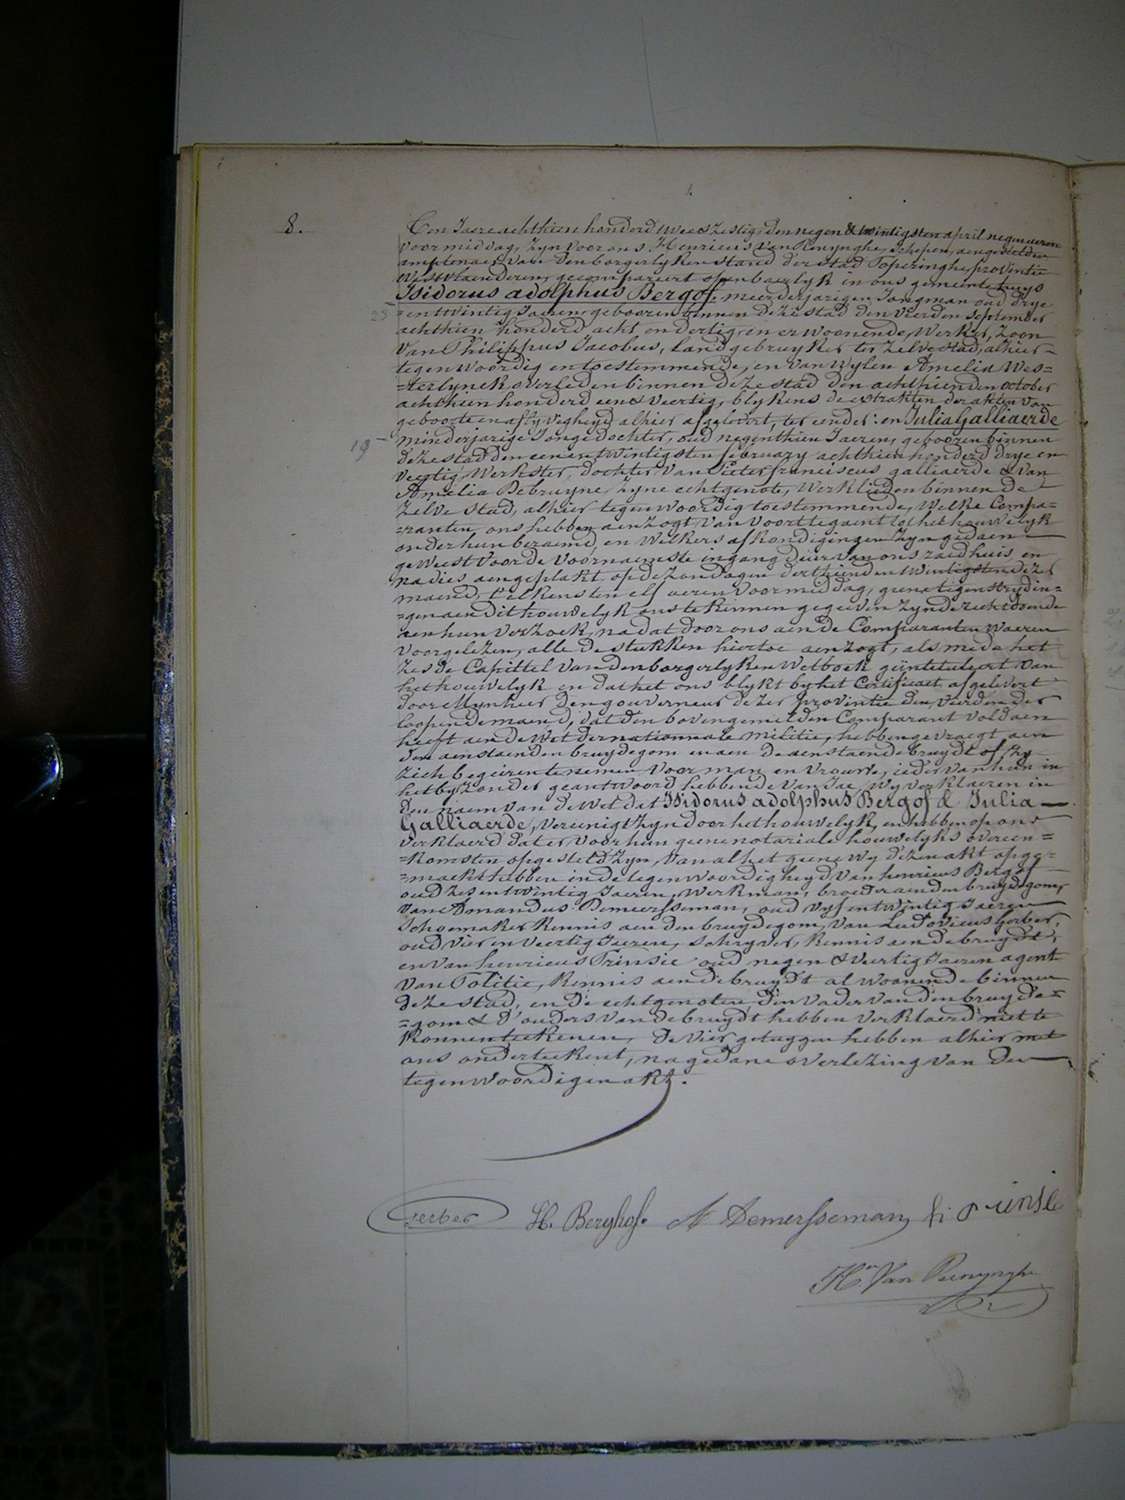 8.
Ten Jaere achthien honderd twee & zestig, den negen & twintigsten april negen ueren
voormiddag, zyn voor ons, Henricus Van Renynghe, schepen, aengestelden
amptenaer van den borgerlyken stand der stad Poperinghe, provintie
Westvlaenderen, gecompareert openbaerlyk in ons gemeentehuys
Isidorus adolphus Bergof, meerderjarigen Jongman oud drye
23
entwintig Jaeren, geboren binnen deze stad den vierden september
achthien honderd acht en dertig, en er woonende, Werker, zoon
Van Philippus Jacobus, landgebruyker ter zelve stad, alhier-
tegenwoordig en toestemmende, en van wylen Amelia Wes=
=terlynck, overleden binnen deze stad den achthienden october
achthien honderd een & veertig, blykens de extrakten der akten van
geboorte en aflyvigheyd alhier afgelevert, ter eender: en Julia Galliaerde
19
minderjarige Jongedochter, oud negenthien Jaeren, geboren binnen
deze stad den een en twintigsten february achthien honderd drye en
veertig, Werkster, dochter Van Pieter franciscus galliaerde & van
Amelia Debruyne, zyne echtgenote, Werklieden binnen de
zelve stad, alhier tegenwoordig toestemmende, Welke Compa=
=ranten, ons hebben aenzogt van voorttegaen tot het houwelyk
onder hun beraemd, en Welkers afkondigingen zyn gedaen
geweest voor de voornaemste ingang deur van ons raedhuis en
nadies aengeplakt op de zondagen derthienden twintigsten dezer
maend, telkens ten elf ueren voormiddag, geene tegenstrydin=
=gen aen dit houwelyk ons te kennen gegeeven zynde rechtdoende
aen hun verzoek, nadat door ons aen de Comparanten waeren
voorgelezen, alle de stukken hiertoe aenzogt, als mede het
zesde Capittel van den borgerlyken Wetboek geïntituleert van
het houwelyk en dat het ons blykt by het Certificaet afgelevert
door Mynheer den gouverneur dezer provintie den vierden der
loopende maend, dat den bovengemelden Comparant voldaen
heeft aen de Wet der nationnale Militie, hebben gevraegt aen
den aenstaenden bruydegom en aen de aenstaende bruydt of zy
zich begeeren te nemen voor man en vrouw, ieder van hun in
het byzonder geantwoord hebbende van Jae, wy verklaeren in
den naem van de Wet dat Isidorus adolphus Bergof & Julia
Galliaerde, vereenigt zyn door het houwelyk, en hebben op ons
verklaerd dat er voor hun geene notariale houwelyks overeen=
=komsten opgesteld zyn, van al het geene wy dezen akt opge=
=maekt hebben in de tegenwoordigheyd van henricus Bergof
oud zes en twintig Jaeren, Werkman, broeder aen den bruydegom,
van Amandus Demersseman, oud vyf en twintig Jaeren
schoenmaker kennis aen den bruydegom, van Ludovicus Gerber,
oud vier en veertig Jaeren, schryver, kennis aen de bruydt,
en van henricus Prinsie oud negen & veertig Jaeren agent
van Politie, kennis aen de bruydt al woonende binnen
deze stad, en de echtgenoten, den vader van den bruyde=
=gom & d'ouders van de bruydt hebben verklaerd niet te
konnen teekenen, de vier getuygen hebben alhier met
ons onderteekent, na gedane overlezing van den
tegenwoordigen akt.
Gerber H. Berghof. A Demersseman h prinsie
Hri Van Renynghe